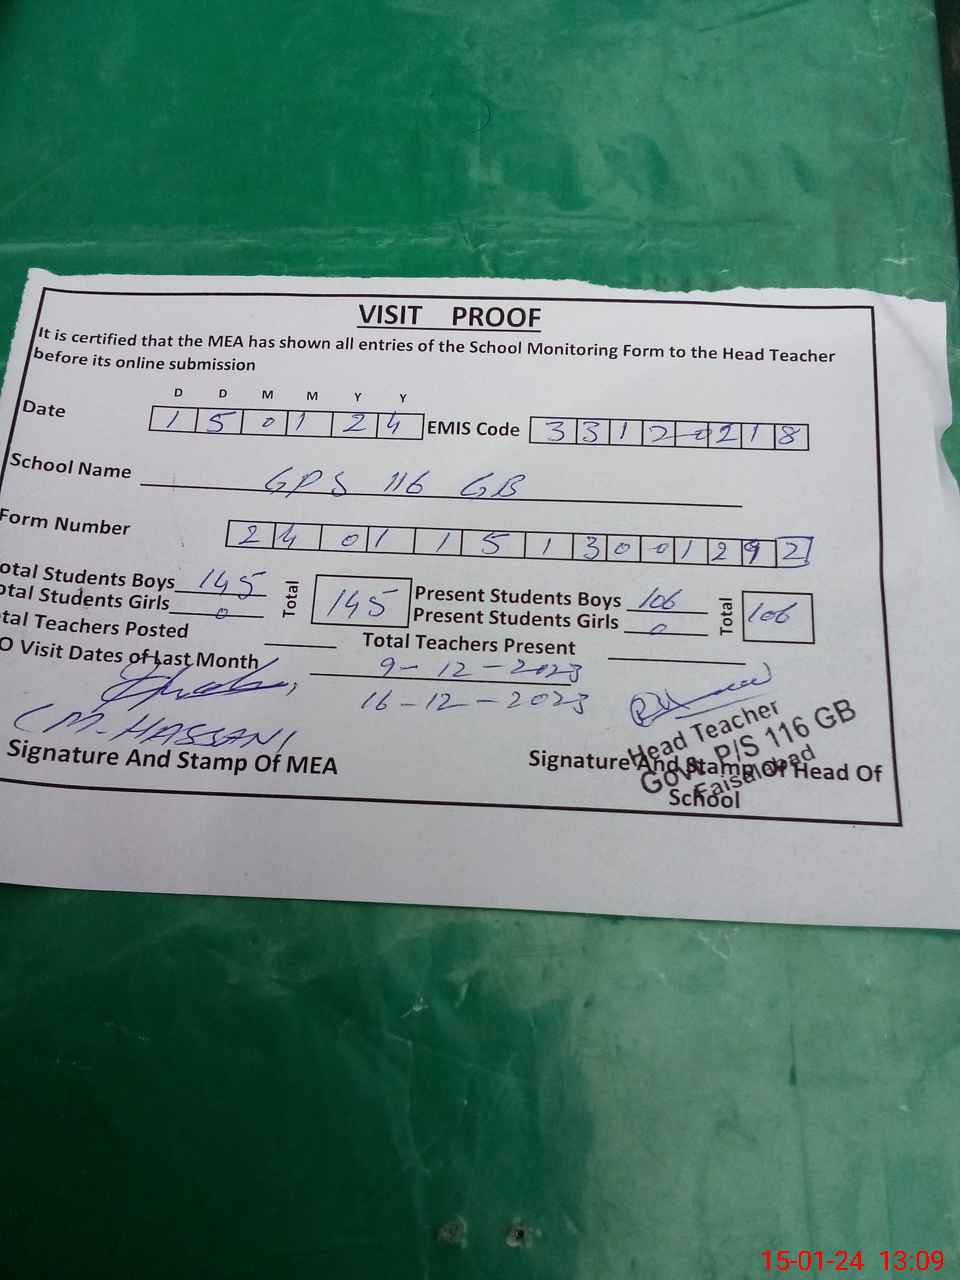 VISIT PROOF
It is certified that the MEA has shown all entries of the School Monitoring Form to the Head Teacher
before its online submission
D D M M Y Y
Date 1 5 0 1 2 4 EMIS Code 3 3 1 2 0 2 1 8
School Name GPS 116 GB
Form Number 2 4 0 1 1 5 1 3 0 0 1 2 9 2
otal Students Boys 145 Total 145 Present Students Boys 106 Total 106
otal Students Girls 0 Present Students Girls 0
tal Teachers Posted Total Teachers Present
O Visit Dates of Last Month 9-12-2023
16-12-2023
(M. HASSAN)
Signature And Stamp Of MEA
Signature And Stamp Of Head Of
School
Head Teacher
Govt. P/S 116 GB
Faisalabad
15-01-24 13:09